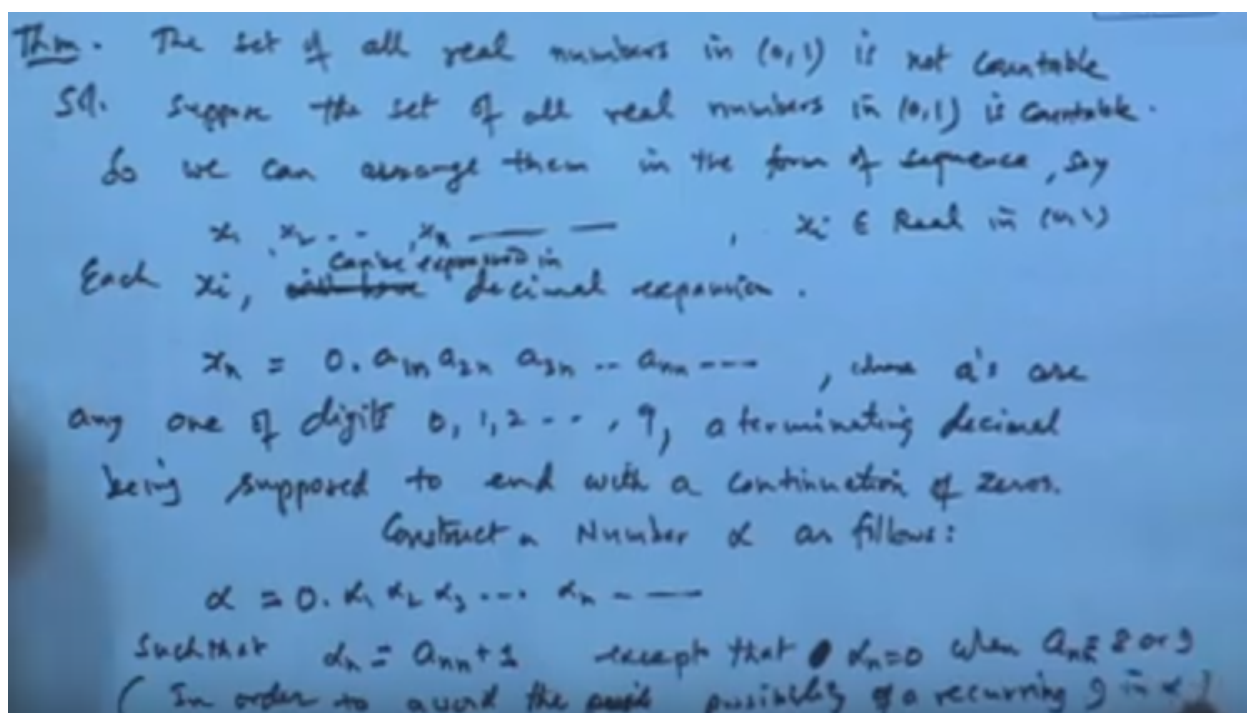 Thm. The set of all real numbers in (0,1) is not countable
Sol. Suppose the set of all real numbers in (0,1) is countable.
So we can arrange them in the form of sequence, say
x₁, x₂ - - , xₙ — — , xᵢ ∈ Real in (0,1)
can be expressed in
Each xᵢ, decimal expansion.
xₙ = 0. a₁ₙ a₂ₙ a₃ₙ -- aₙₙ --- , where a's are
any one of digits 0, 1, 2 - - - , 9, a terminating decimal
being supposed to end with a continuation of zeros.
Construct a Number α as follows:
α = 0. α₁ α₂ α₃ --- αₙ - — —
Such that αₙ = aₙₙ + 1 except that αₙ = 0 when aₙₙ = 8 or 9
( In order to avoid the possibility of a recurring 9 in α )